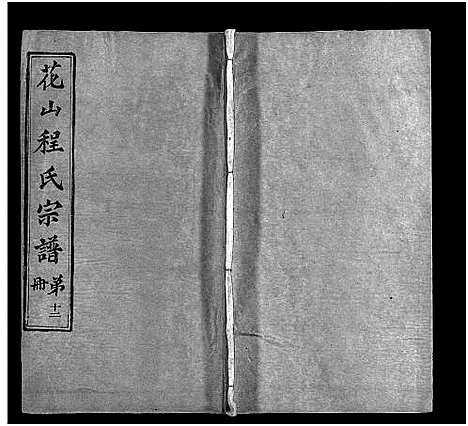 花山程氏宗譜
第十二
冊